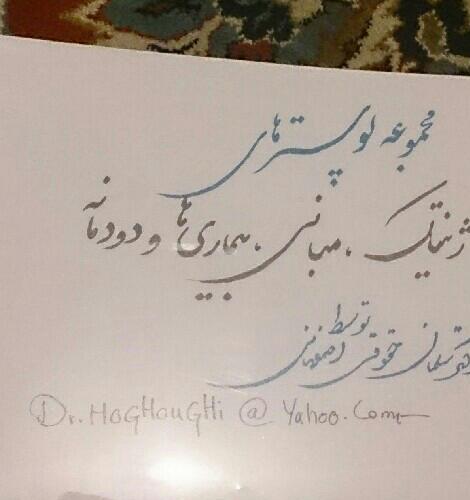 مجموعه پوسترهای
ژنتیک ، مبانی ، بیماری‌ها و دودمانه
توسط
دکتر سلمان حقوقی اصفهانی
Dr.HOGHOUGHI @ Yahoo.Com